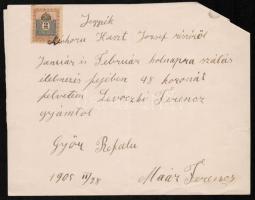 Jegyzék
Haszt József részéről
Január és Február holnapra szállás
élelmezés fejében 48 koronát
felvettem Levoczki Ferencz
gyámtol
Győr Refalu
1905 II/28 Maár Ferencz